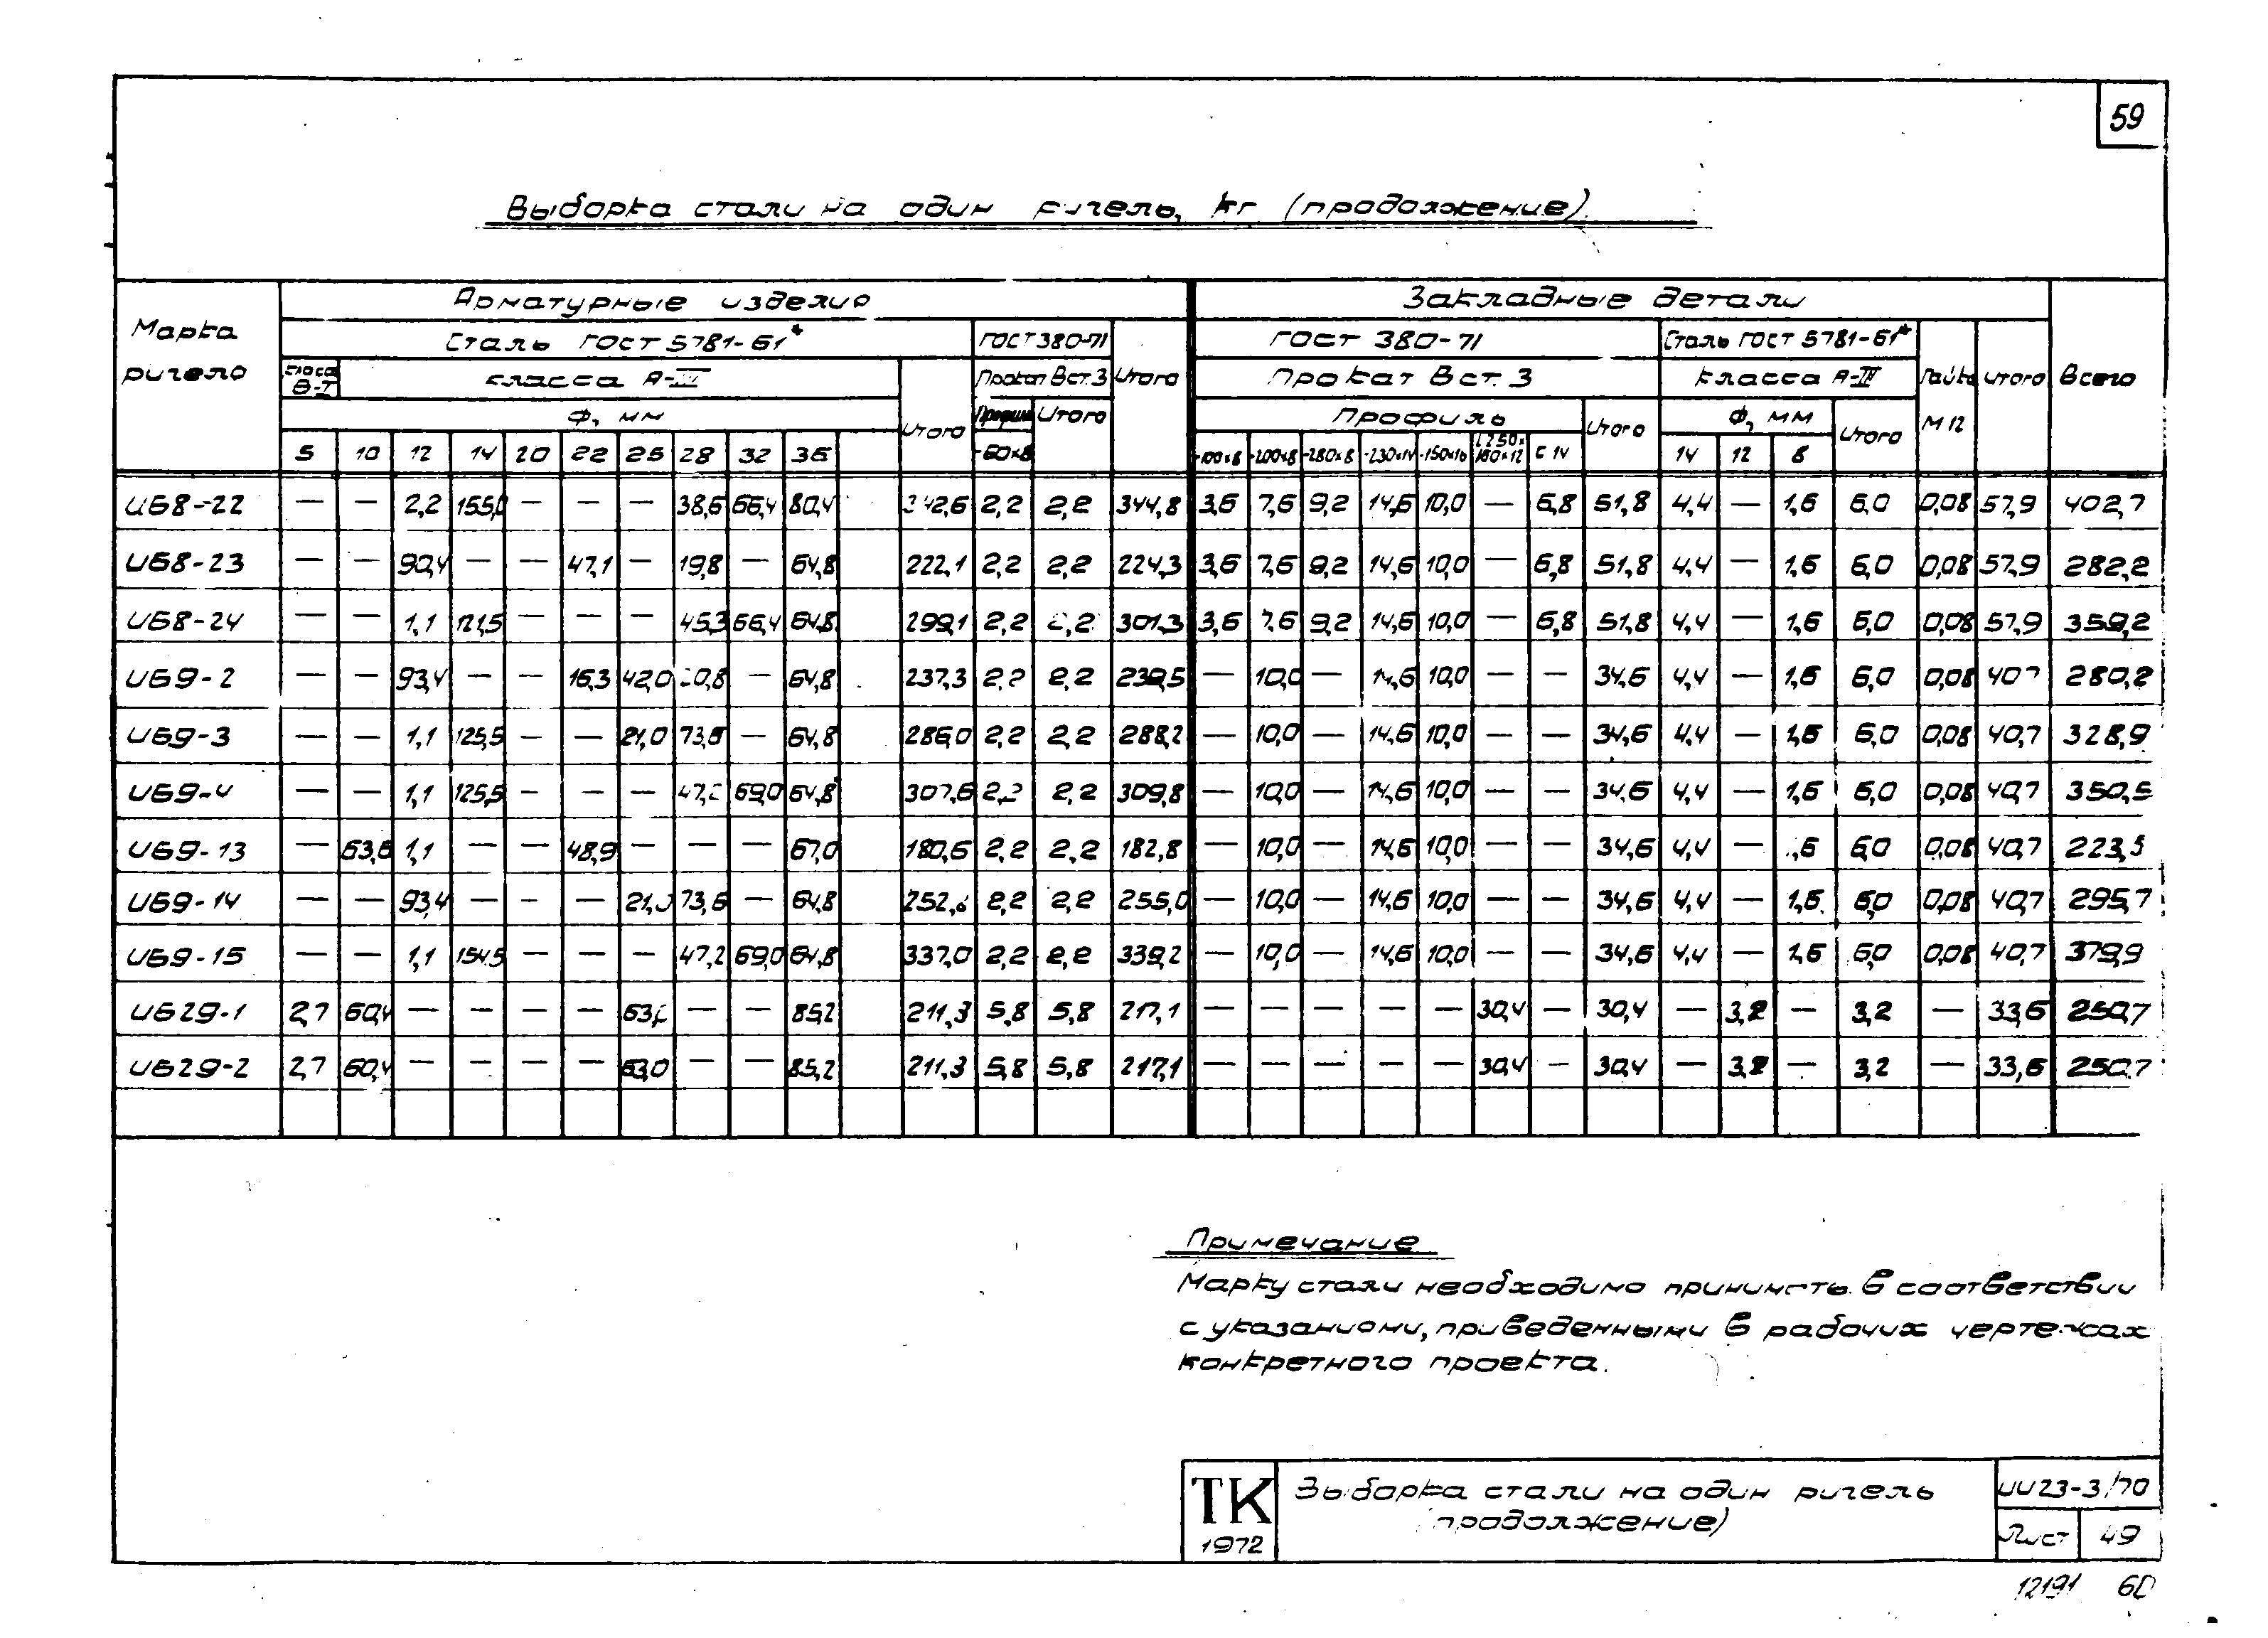 59
Выборка стали на один ригель, кг (продолжение)
Марка ригеля | Арматурные изделия | Закладные детали | Всего
Сталь ГОСТ 5781-61* | ГОСТ 380-71 | Итого | ГОСТ 380-71 | Сталь ГОСТ 5781-61* | Гайка М12 | Итого
Класса В-I | Класса А-III | Итого | Прокат Вст.3 | Прокат Вст.3 | Класса А-III
Ф, мм | Профиль | Итого | Профиль | Итого | Ф, мм | Итого
5 | 10 | 12 | 14 | 20 | 22 | 25 | 28 | 32 | 36 | -60×8 | -100×8 | -200×8 | -280×8 | -230×14 | -150×16 | L250×160×12 | С 14 | 14 | 12 | 8
ИБ8-22 | — | — | 2,2 | 155,0 | — | — | — | 38,6 | 66,4 | 80,4 | 342,6 | 2,2 | 2,2 | 344,8 | 3,6 | 7,6 | 9,2 | 14,6 | 10,0 | — | 6,8 | 51,8 | 4,4 | — | 1,6 | 6,0 | 0,08 | 57,9 | 402,7
ИБ8-23 | — | — | 90,4 | — | — | 47,1 | — | 19,8 | — | 64,8 | 222,1 | 2,2 | 2,2 | 224,3 | 3,6 | 7,6 | 9,2 | 14,6 | 10,0 | — | 6,8 | 51,8 | 4,4 | — | 1,6 | 6,0 | 0,08 | 57,9 | 282,2
ИБ8-24 | — | — | 1,1 | 121,5 | — | — | — | 45,3 | 66,4 | 64,8 | 299,1 | 2,2 | 2,2 | 301,3 | 3,6 | 7,6 | 9,2 | 14,6 | 10,0 | — | 6,8 | 51,8 | 4,4 | — | 1,6 | 6,0 | 0,08 | 57,9 | 359,2
ИБ9-2 | — | — | 93,4 | — | — | 16,3 | 42,0 | 20,8 | — | 64,8 | 237,3 | 2,2 | 2,2 | 239,5 | — | 10,0 | — | 14,6 | 10,0 | — | — | 34,6 | 4,4 | — | 1,6 | 6,0 | 0,08 | 40,7 | 280,2
ИБ9-3 | — | — | 1,1 | 125,5 | — | — | 21,0 | 73,6 | — | 64,8 | 286,0 | 2,2 | 2,2 | 288,2 | — | 10,0 | — | 14,6 | 10,0 | — | — | 34,6 | 4,4 | — | 1,6 | 6,0 | 0,08 | 40,7 | 328,9
ИБ9-4 | — | — | 1,1 | 125,5 | — | — | — | 47,2 | 69,0 | 64,8 | 307,6 | 2,2 | 2,2 | 309,8 | — | 10,0 | — | 14,6 | 10,0 | — | — | 34,6 | 4,4 | — | 1,6 | 6,0 | 0,08 | 40,7 | 350,5
ИБ9-13 | — | 63,6 | 1,1 | — | — | 48,9 | — | — | — | 67,0 | 180,6 | 2,2 | 2,2 | 182,8 | — | 10,0 | — | 14,6 | 10,0 | — | — | 34,6 | 4,4 | — | 1,6 | 6,0 | 0,08 | 40,7 | 223,5
ИБ9-14 | — | — | 93,4 | — | — | — | 21,0 | 73,6 | — | 64,8 | 252,8 | 2,2 | 2,2 | 255,0 | — | 10,0 | — | 14,6 | 10,0 | — | — | 34,6 | 4,4 | — | 1,6 | 6,0 | 0,08 | 40,7 | 295,7
ИБ9-15 | — | — | 1,1 | 154,5 | — | — | — | 47,2 | 69,0 | 64,8 | 337,0 | 2,2 | 2,2 | 339,2 | — | 10,0 | — | 14,6 | 10,0 | — | — | 34,6 | 4,4 | — | 1,6 | 6,0 | 0,08 | 40,7 | 379,9
ИБ29-1 | 2,7 | 60,4 | — | — | — | — | 63,0 | — | — | 85,2 | 211,3 | 5,8 | 5,8 | 217,1 | — | — | — | — | — | 30,4 | — | 30,4 | — | 3,2 | — | 3,2 | — | 33,6 | 250,7
ИБ29-2 | 2,7 | 60,4 | — | — | — | — | 63,0 | — | — | 85,2 | 211,3 | 5,8 | 5,8 | 217,1 | — | — | — | — | — | 30,4 | — | 30,4 | — | 3,2 | — | 3,2 | — | 33,6 | 250,7
Примечание
Марку стали необходимо принимать в соответствии
с указаниями, приведенными в рабочих чертежах
конкретного проекта.
ТК
1972
Выборка стали на один ригель
(продолжение)
ИИ23-3/70
Лист 49
12191 60